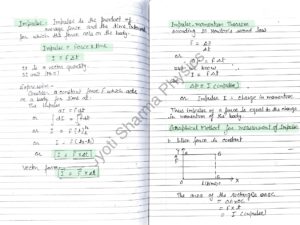 Impulse:- Impulse is the product of
average force and the time interval
for which the force acts on the body.
Impulse = Force x time
I = F Δt
It is a vector quantity.
SI unit
Expression:-
Consider a constant force F which acts
on a body for time dt.
The impulse
dI = F dt
or
or
or
or I = F x Δt
Vector form
Impulse-momentum Theorem
According to Newton's second law
F =
or = F Δt
but we know
I = F Δt
Δp = I (impulse)
or Impulse I = Change in momentum.
Thus impulse of a force is equal to the change
in momentum of the body.
Graphical Method for measurement of Impulse
1. When force is constant
The area of the rectangle OABC
= OA x OC
= F x t
= I (impulse)
Jyoti Sharma Physics